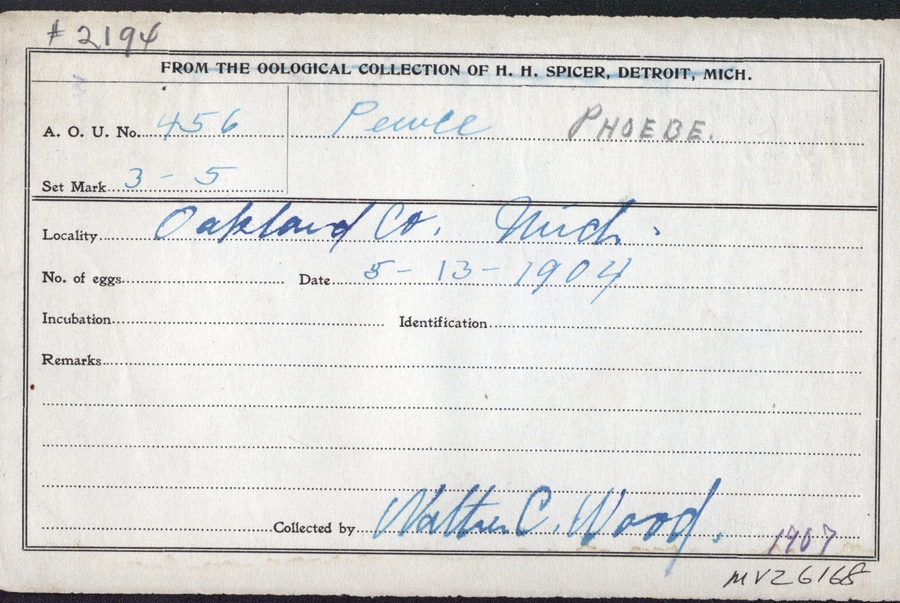 # 2194
FROM THE OOLOGICAL COLLECTION OF H. H. SPICER, DETROIT, MICH.
A. O. U. No. 456 Pewee PHOEBE.
Set Mark 3 - 5
Locality Oakland Co. Mich.
No. of eggs Date 5-13-1904
Incubation Identification
Remarks
Collected by Walter C. Wood.
1907
MVZ6168